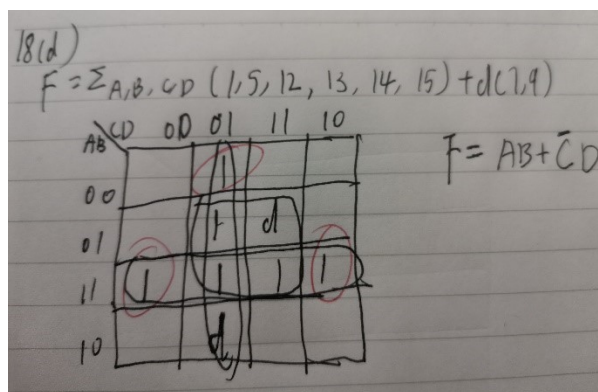 18(d)
F = Σ A,B,CD (1,5,12,13,14,15)+d(7,9)
AB CD 00 01 11 10
00 1
01 1 d
11 1 1 1 1
10 d
F = AB + C̄D